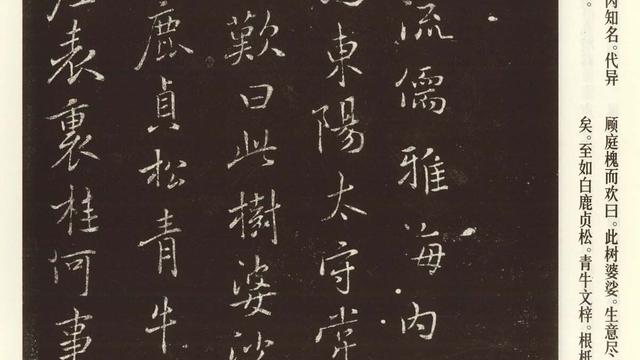 内知名。代异
顾庭槐而欢曰。此树婆娑。生意尽
矣。至如白鹿贞松。青牛文梓。根
流儒雅海内
東陽太守常
歎曰此樹婆
鹿貞松青牛
表裏桂何事